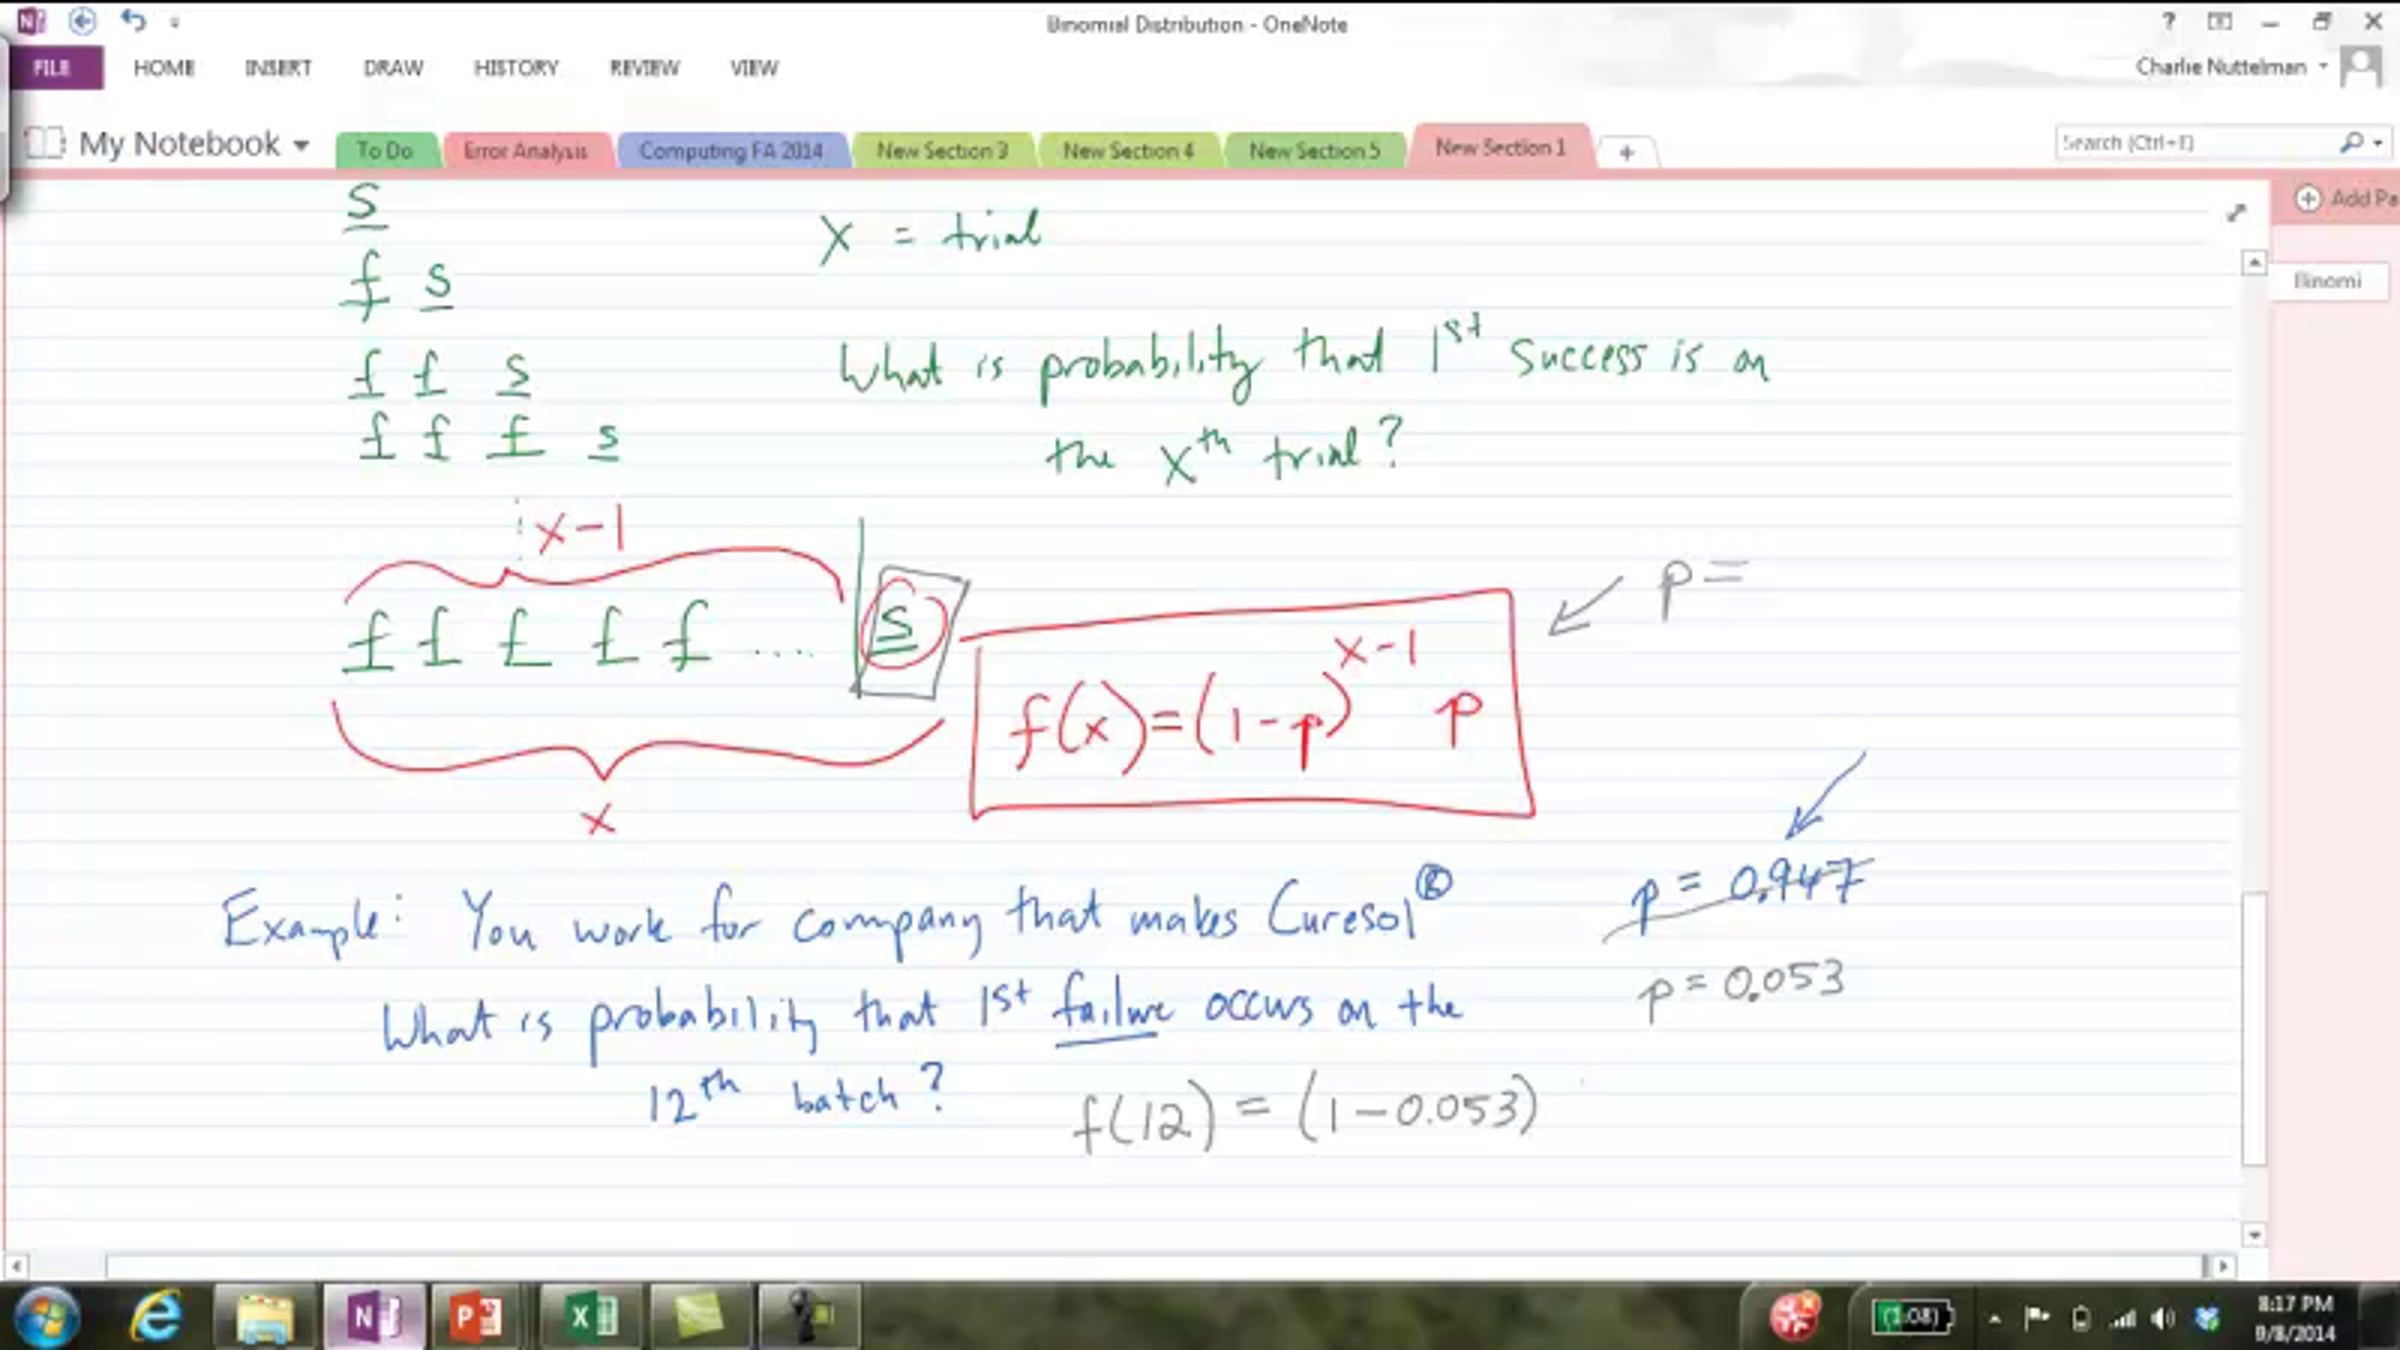 Binomial Distribution - OneNote
FILE HOME INSERT DRAW HISTORY REVIEW VIEW
Charlie Nuttelman
My Notebook
To Do
Error Analysis
Computing FA 2014
New Section 3
New Section 4
New Section 5
New Section 1
Search (Ctrl+E)
Add Pa
Binomi
s
x = trial
f s
f f s
What is probability that 1st success is on
f f f s
the xth trial?
x-1
f f f f f .... s
p=
f(x)=(1-p)^(x-1) p
x
Example: You work for company that makes Curesol®
p = 0.947
What is probability that 1st failure occurs on the
p=0.053
12th batch?
f(12) = (1-0.053)
(1:08)
8:17 PM
9/8/2014